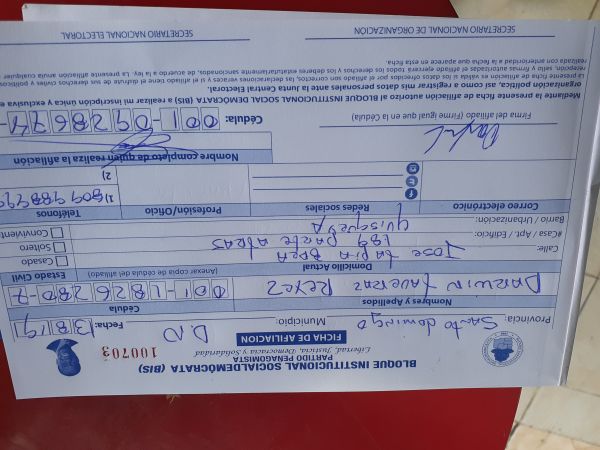 BLOQUE INSTITUCIONAL SOCIALDEMÓCRATA (BIS)
PARTIDO PENAGOMISTA
Libertad, Justicia, Democracia y Solidaridad
FICHA DE AFILIACION
100703
Provincia: Santo domingo Municipio: D.N Fecha:
Nombres y Apellidos
Cédula
DARWIN TAVERAS REYES
001-1826280-7
Domicilio Actual
(Anexar copia de cédula del afiliado)
Estado Civil
Calle: JOSE TAPIA BREA
Casado
#Casa / Apt. / Edificio: 189 PARTE ATRAS
Soltero
Barrio / Urbanización: QUISQUEYA
Conviviente
Correo electrónico
Redes sociales
Profesión/Oficio
Teléfonos
1)
2)
Nombre completo de quien realiza la afiliación
Firma del afiliado (Firme igual que en la Cédula)
Cédula: 001-0928674-
Mediante la presente ficha de afiliación autorizo al BLOQUE INSTITUCIONAL SOCIALDEMÓCRATA (BIS) a realizar mi inscripción única y exclusiva
organización política, así como a registrar mis datos personales ante la Junta Central Electoral.
La presente ficha de afiliación es válida si los datos ofrecidos por el afiliado son correctos, las declaraciones veraces y si el afiliado tiene el disfrute de sus derechos civiles y políticos
recepción, sello y firmas autorizadas el afiliado ejercerá todos los derechos y los deberes estatutariamente sancionados, de acuerdo a la ley. La presente afiliación anula cualquier
realizada con anterioridad a la fecha que aparece en esta ficha.
SECRETARIO NACIONAL DE ORGANIZACIÓN
SECRETARIO NACIONAL ELECTORAL